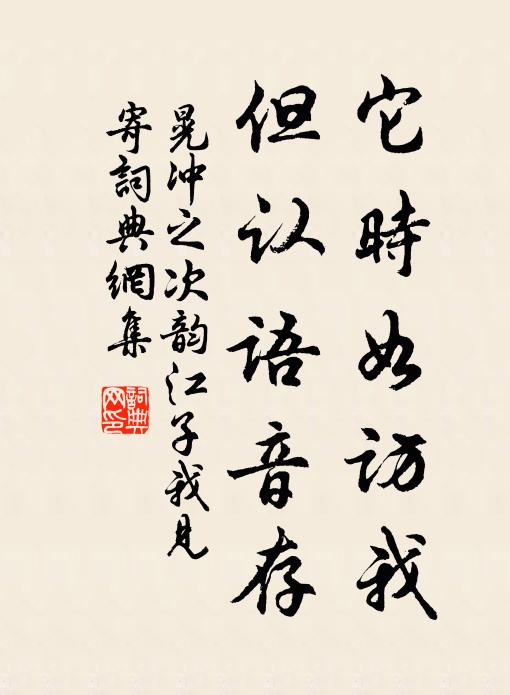 它時如訪我
但认語音存
晁冲之次韵江子我見
寄詞典網集
詞典
网印